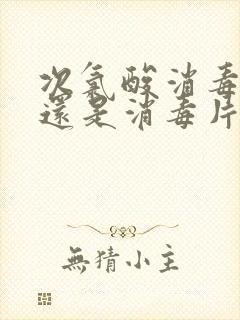 次氯酸消毒
還是消毒片
無猜小主